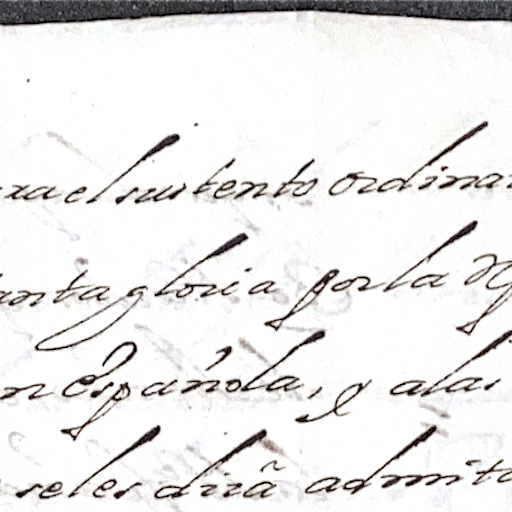 xa el sustento ordinar
anta gloria por la
n Española, y alas
seles dirã admit